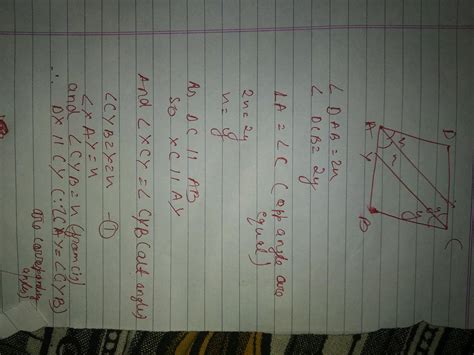 D
C
A
x
x
y
y
Y
B
∠DAB = 2x
∠DCB = 2y
∠A = ∠C (opp angle are equal)
2x = 2y
x = y
As DC || AB
So XC || AY
And ∠XCY = ∠CYB (alt angles)
∠CYB = x = x — ①
∠XAY = x
and ∠CYB = x (from (i))
∴ DX || CY (∵ ∠CAY = ∠CYB)
are corresponding angles)